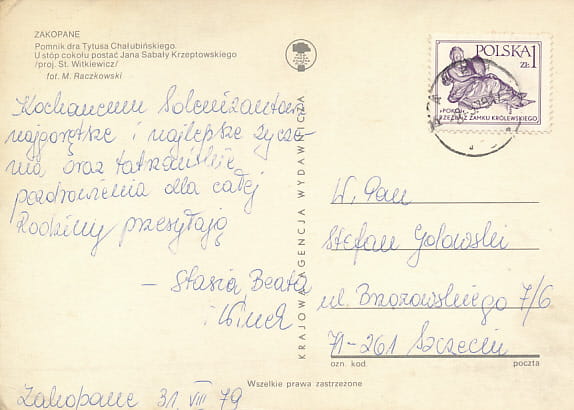 ZAKOPANE
Pomnik dra Tytusa Chałubińskiego.
U stóp cokołu postać Jana Sabały Krzeptowskiego
/proj. St. Witkiewicz/
fot. M. Raczkowski
Kochanemu Solenizantowi
najgorętsze i najlepsze życze-
nia oraz tatrzańskie
pozdrowienia dla całej
Rodziny przesyłają
– Stasia Beata
i
Zakopane 31 VIII 79
KRAJOWA AGENCJA WYDAWNICZA
POLSKA 1
ZŁ
"POKÓJ"
RZEŹBA Z ZAMKU KRÓLEWSKIEGO
W. Pan
Stefan Golowski
ul. Brzozowskiego 7/6
71-261 Szczecin
ozn. kod poczta
Wszelkie prawa zastrzeżone